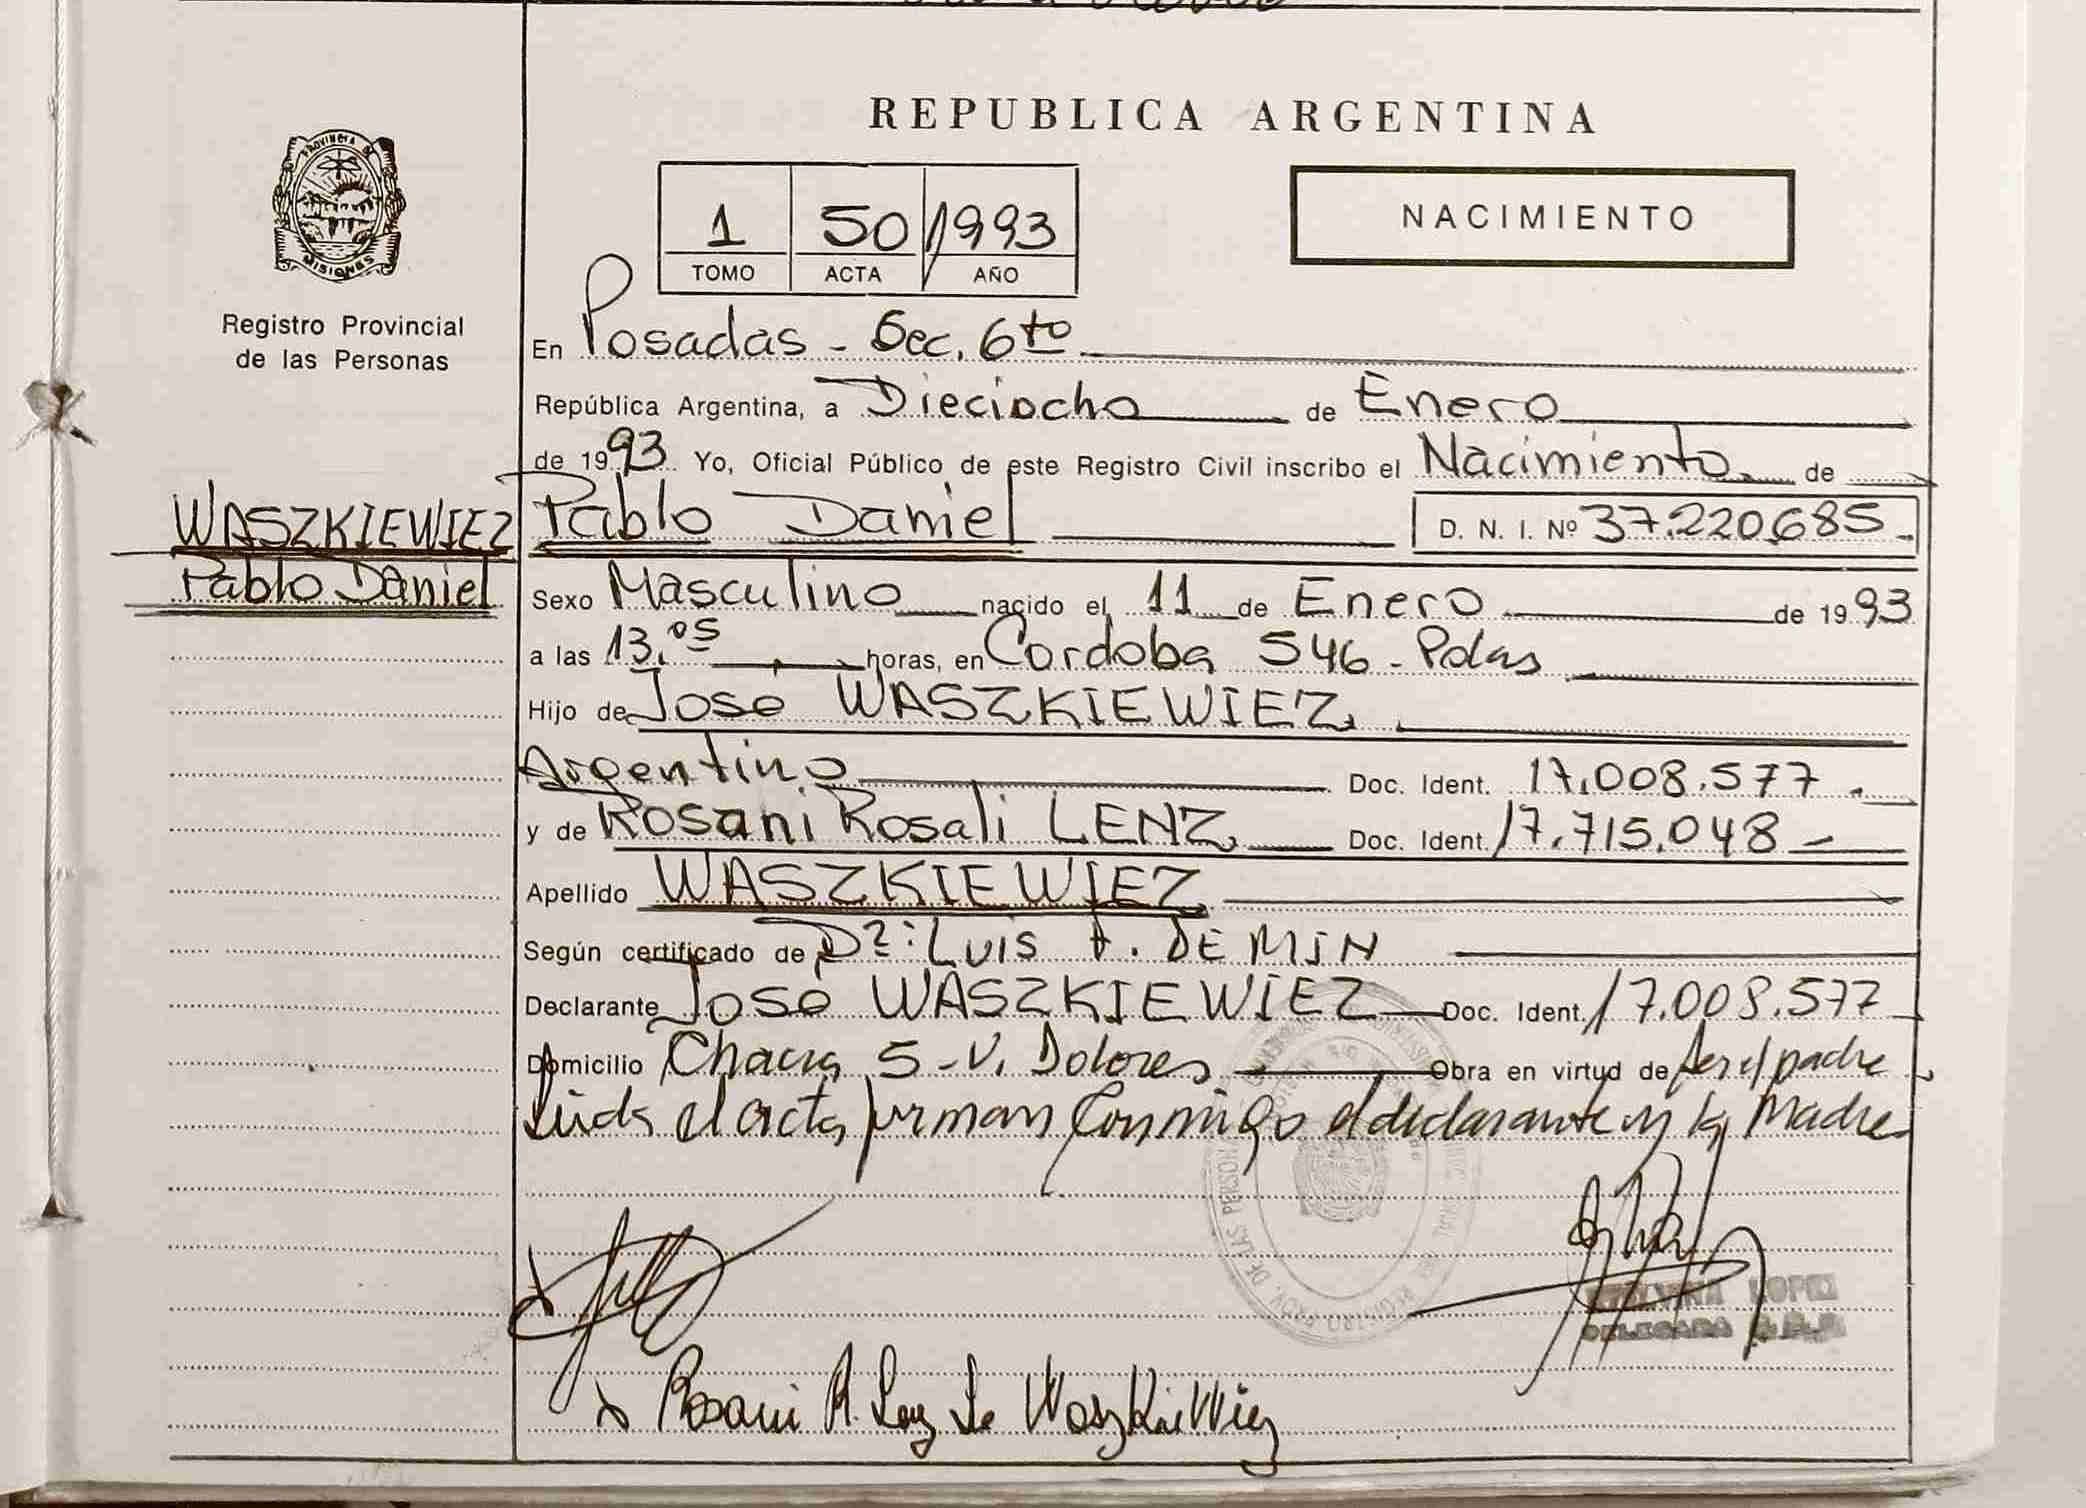 REPUBLICA ARGENTINA
PROVINCIA DE
MISIONES
Registro Provincial
de las Personas
NACIMIENTO
1 50 1993
TOMO ACTA AÑO
En Posadas - Sec. 6to
República Argentina, a Dieciocho de Enero
de 1993 Yo, Oficial Público de este Registro Civil inscribo el Nacimiento de
WASZKIEWIEZ
Pablo Daniel
Pablo Daniel D. N. I. Nº 37.220.685
Sexo Masculino nacido el 11 de Enero de 1993
a las 13.05 horas, en Cordoba 546 - Pdas
Hijo de José WASZKIEWIEZ
Argentino Doc. Ident. 17.008.577
y de Rosani Rosali LENZ Doc. Ident. 17.715.048
Apellido WASZKIEWIEZ
Según certificado de Dr: LUIS A. DEMIN
Declarante José WASZKIEWIEZ Doc. Ident. 17.008.577
Domicilio Chacra 5 - V. Dolores Obra en virtud de ser el padre
Leida el acta firman conmigo el declarante y la Madre
LOPEZ
DELEGADA
Rosani R. Lenz de WaszKieWiez